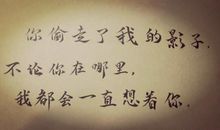 你偷走了我的影子,
不论你在哪里,
我都会一直想着你.